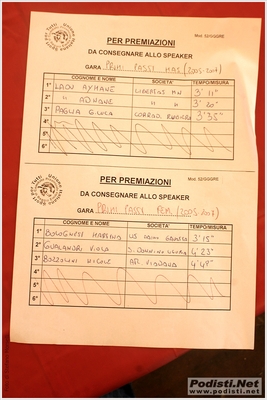 PER PREMIAZIONI
Mod. 52/GGG/RE
DA CONSEGNARE ALLO SPEAKER
GARA PRIMI PASSI MAS. (2005-2007)
COGNOME E NOME SOCIETA' TEMPO/MISURA
1° LADU AYMANE LIBERTAS MN 3' 11"
2° " ADNANE " " 3' 20"
3° PAGLIA G.LUCA CORRADO 3' 35"
4°
5°
6°
PER PREMIAZIONI
Mod. 52/GGG/RE
DA CONSEGNARE ALLO SPEAKER
GARA PRIMI PASSI FEM. (2005-2007)
COGNOME E NOME SOCIETA' TEMPO/MISURA
1° BOLOGNESI MARTINA US 3' 15"
2° GUALANDRI VIOLA S. DONNINO 4' 23"
3° BOZZOLINI NICOLE ATL. VIADANA 4' 49"
4°
5°
6°
Podisti.Net
www.podisti.net